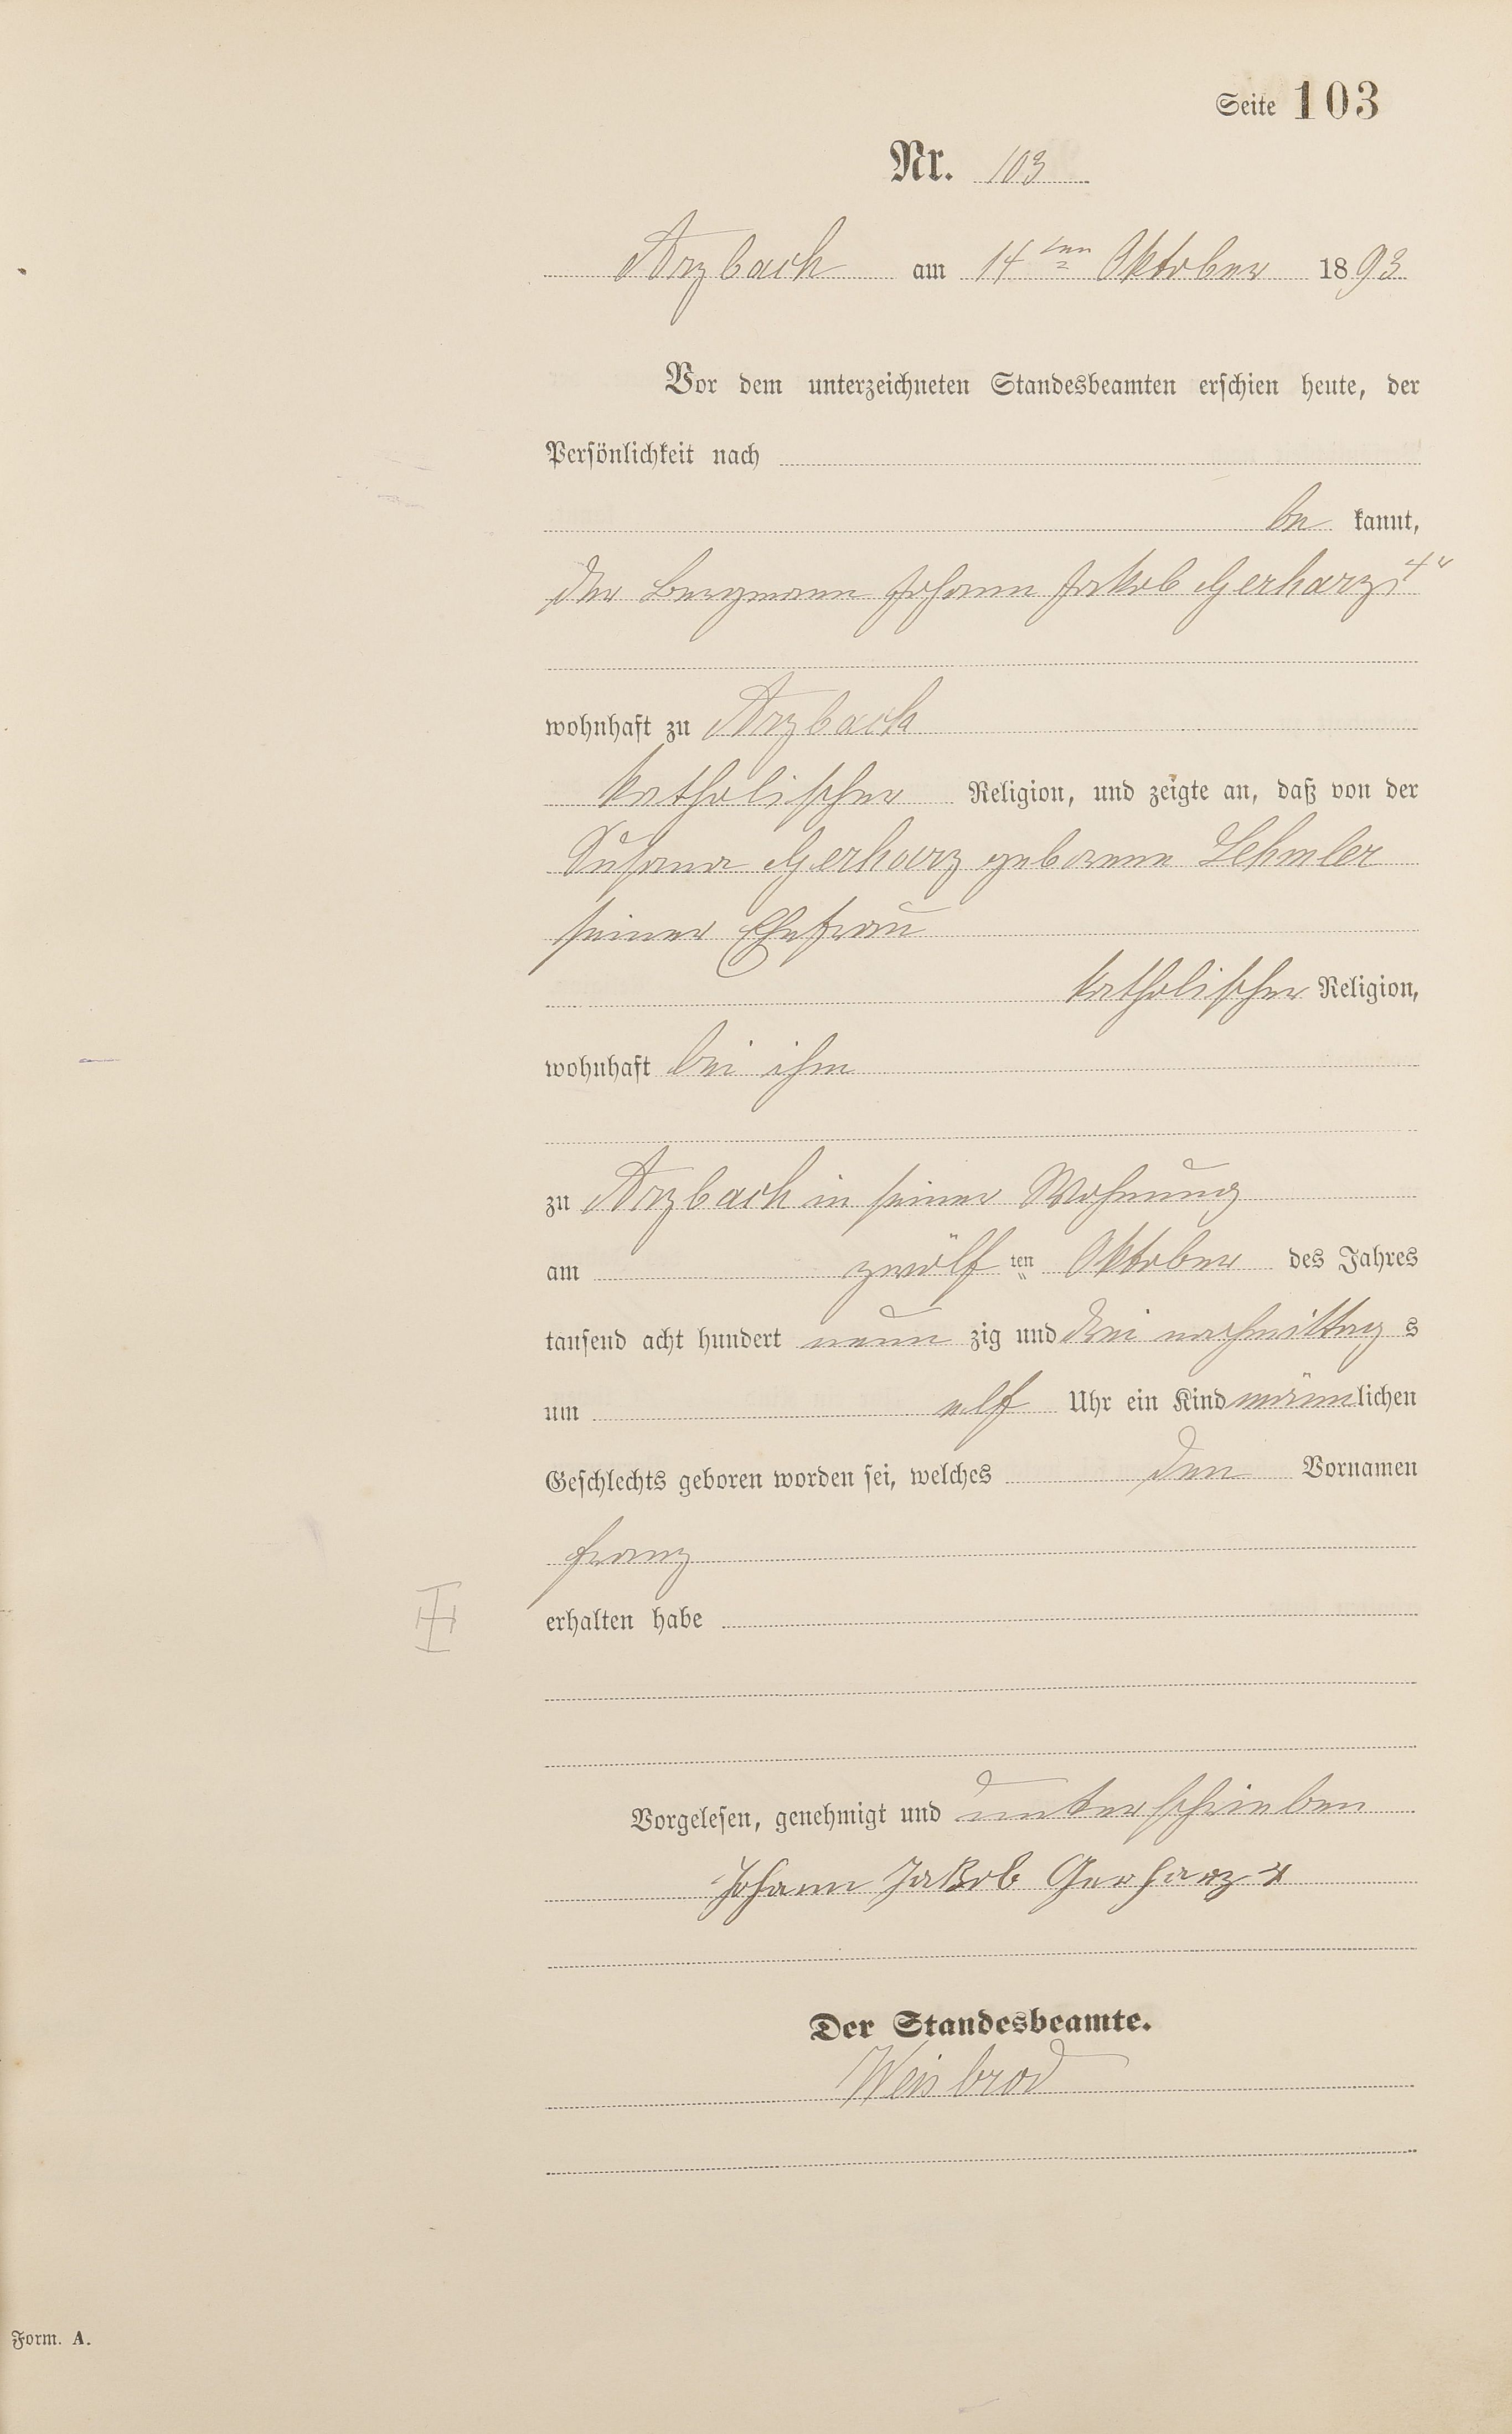 Seite 103
Nr. 103
Arzbach am 14ten Oktober 1893
Vor dem unterzeichneten Standesbeamten erschien heute, der
Persönlichkeit nach
be kannt,
der Bergmann Johann Jakob Gerharz
wohnhaft zu Arzbach
katholischer Religion, und zeigte an, daß von der
Susana Gerharz geborene Lehmler
seiner Ehefrau
katholischer Religion,
wohnhaft bei ihm
zu Arzbach in seiner Wohnung
am zwölf ten Oktober des Jahres
tausend acht hundert neun zig und drei nachmittag s
um elf Uhr ein Kind männlichen
Geschlechts geboren worden sei, welches den Vornamen
Franz
erhalten habe
Vorgelesen, genehmigt und unterschrieben
Johann Jakob Gerharz 4
Der Standesbeamte.
Weisbrod
Form. A.